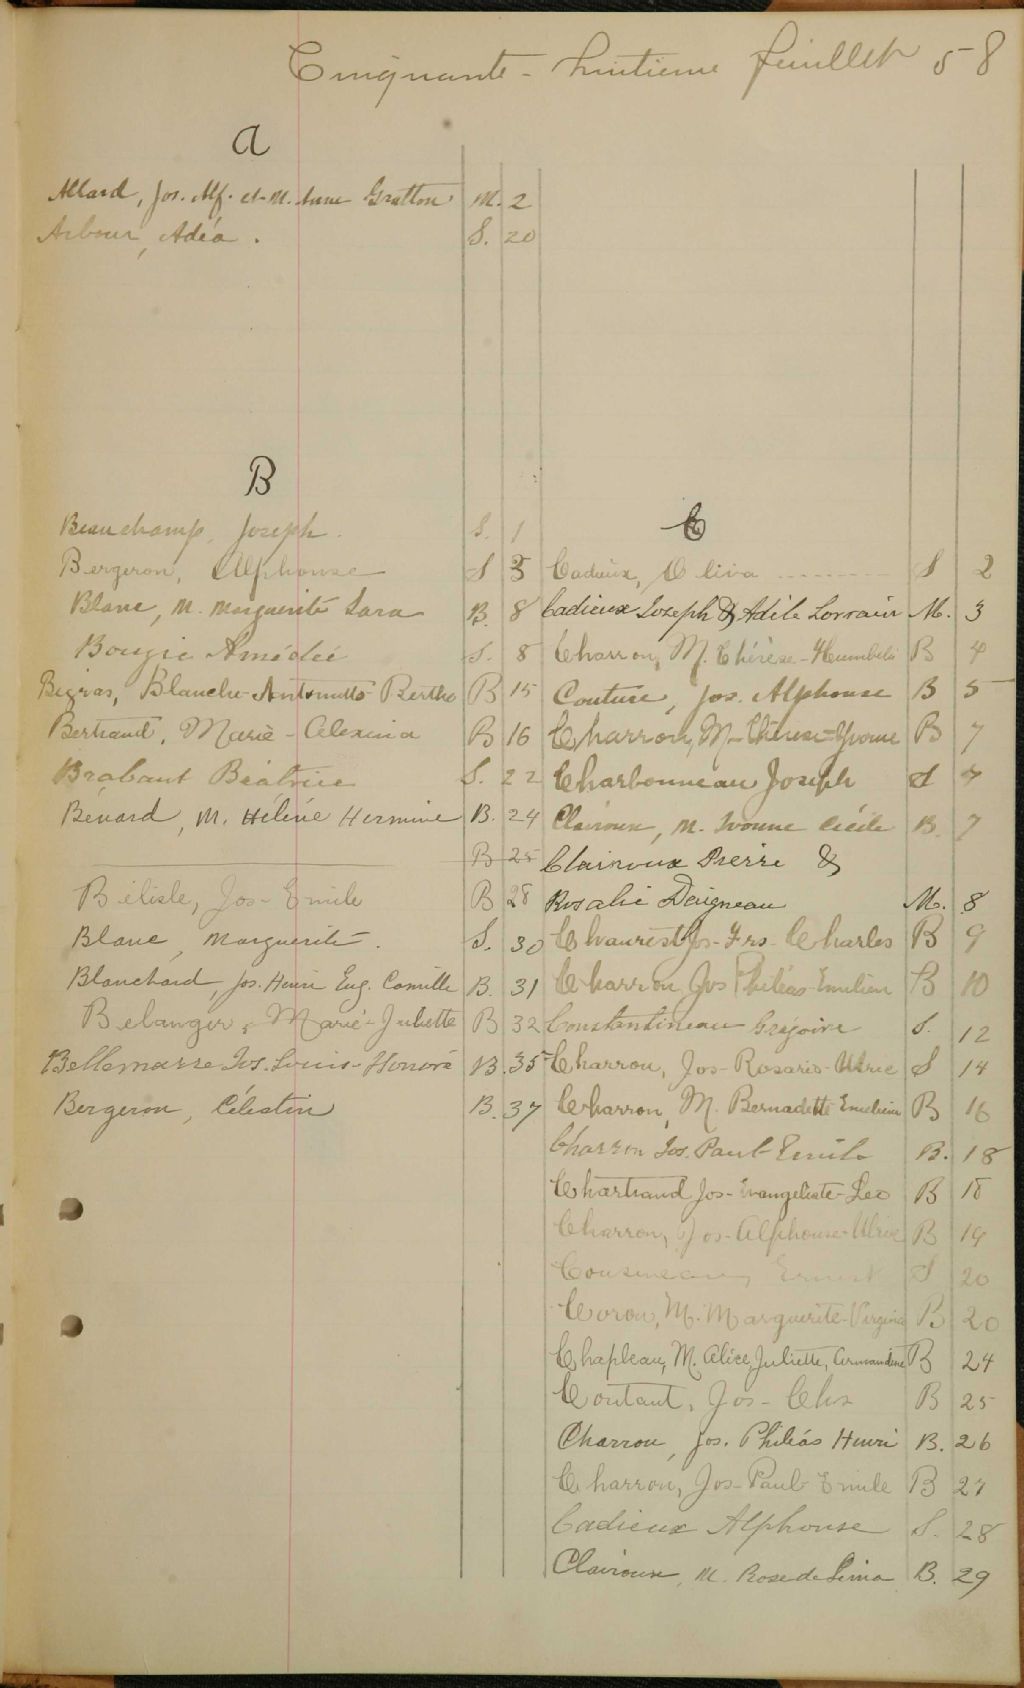 Cinquante-huitieme feuillet 58
A
Allard, Jos. Alf. et M. Anne Gratton M. 2
Arbour, Adéa. S. 20
B
Beauchamp, Joseph. S. 1
Bergeron, Alphonse S 3
Blanc, M. Marguerite Lara B. 8
Bougie Amédée S. 8
Bigras, Blanche-Antoinette-Berthe B 15
Bertrand, Marie-Alexina B 16
Brabant Béatrice S. 22
Bénard, M. Hélène Hermine B. 24
B 25
Bélisle, Jos-Emile B 28
Blanc, Marguerite. S. 30
Blanchard, Jos. Henri Eug. Camille B. 31
Belanger, Marie-Juliette B 32
Bellemarre Jos. Louis-Honoré B. 35
Bergeron, Célestin B. 37
C
Cadieux, Oliva S 2
Cadieux Joseph & Adèle Lorrain M. 3
Charron, M. Thérèse- B 4
Couture, Jos. Alphonse B 5
Charron, M-Thérèse-Yvonne B 7
Charbonneau Joseph S 7
Clairoux, M. Yvonne Cécile B. 7
Clairoux Pierre &
Rosalie Daigneau M. 8
Chaurest Jos-Frs-Charles B 9
Charron Jos Philéas-Emilien B 10
Constantineau Grégoire S. 12
Charron, Jos-Rosario-Ulric S 14
Charron, M. Bernadette B 16
Charron Jos. Paul-Emile B. 18
Chartrand Jos-Evangéliste-Leo B 18
Charron, Jos-Alphonse-Ulric B 19
Cousineau, Ernest S 20
Coron, M. Marguerite-Virginie B 20
Chapleau, M. Alice, Juliette, Armandine B 24
Coutant, Jos-Chs B 25
Charron, Jos. Philéas Henri B. 26
Charron, Jos-Paul-Emile B 27
Cadieux Alphonse S. 28
Clairoux, M. Rose de Lima B. 29